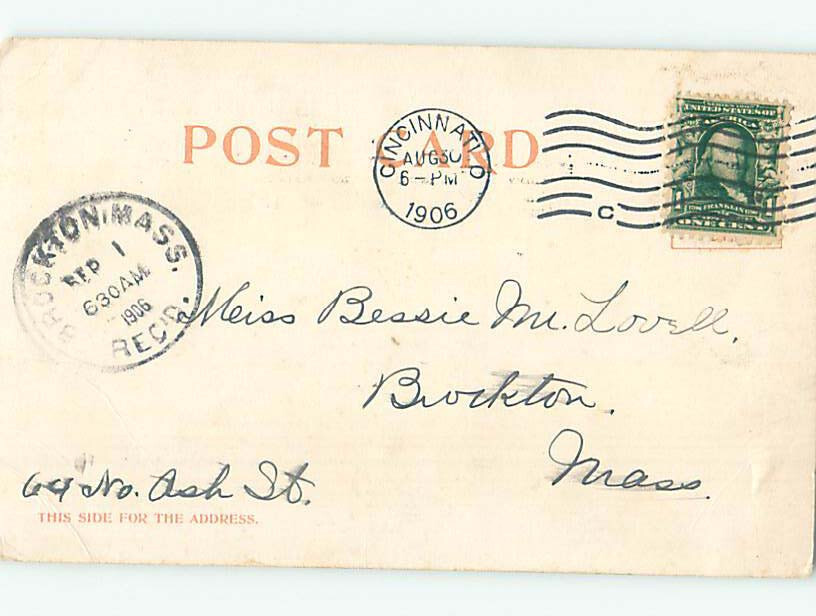 POST CARD
CINCINNATI, O
AUG 30
6-PM
1906
C
SERIES 1902
UNITED STATES OF
AMERICA
FRANKLIN
ONE CENT
BROCKTON, MASS.
SEP 1
630AM
1906
REC'D.
Miss Bessie M. Lovell,
Brockton,
Mass.
64 No. Ash St.
THIS SIDE FOR THE ADDRESS.